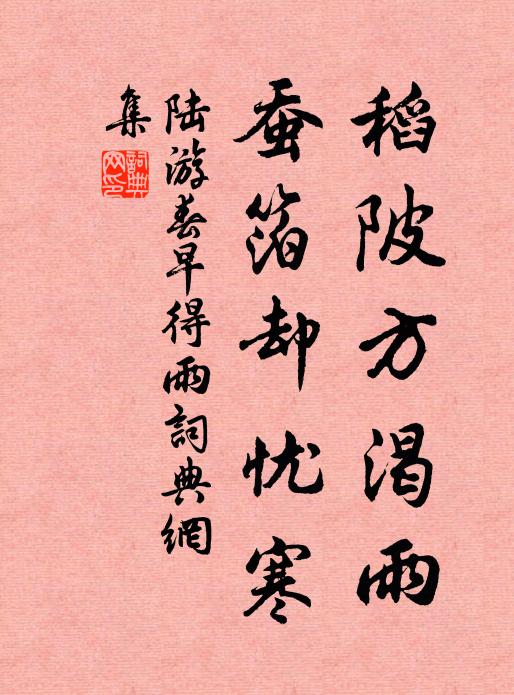 稻陂方渴雨
蚕箔却忧寒
陆游春早得雨詞典網
集
詞典
网印